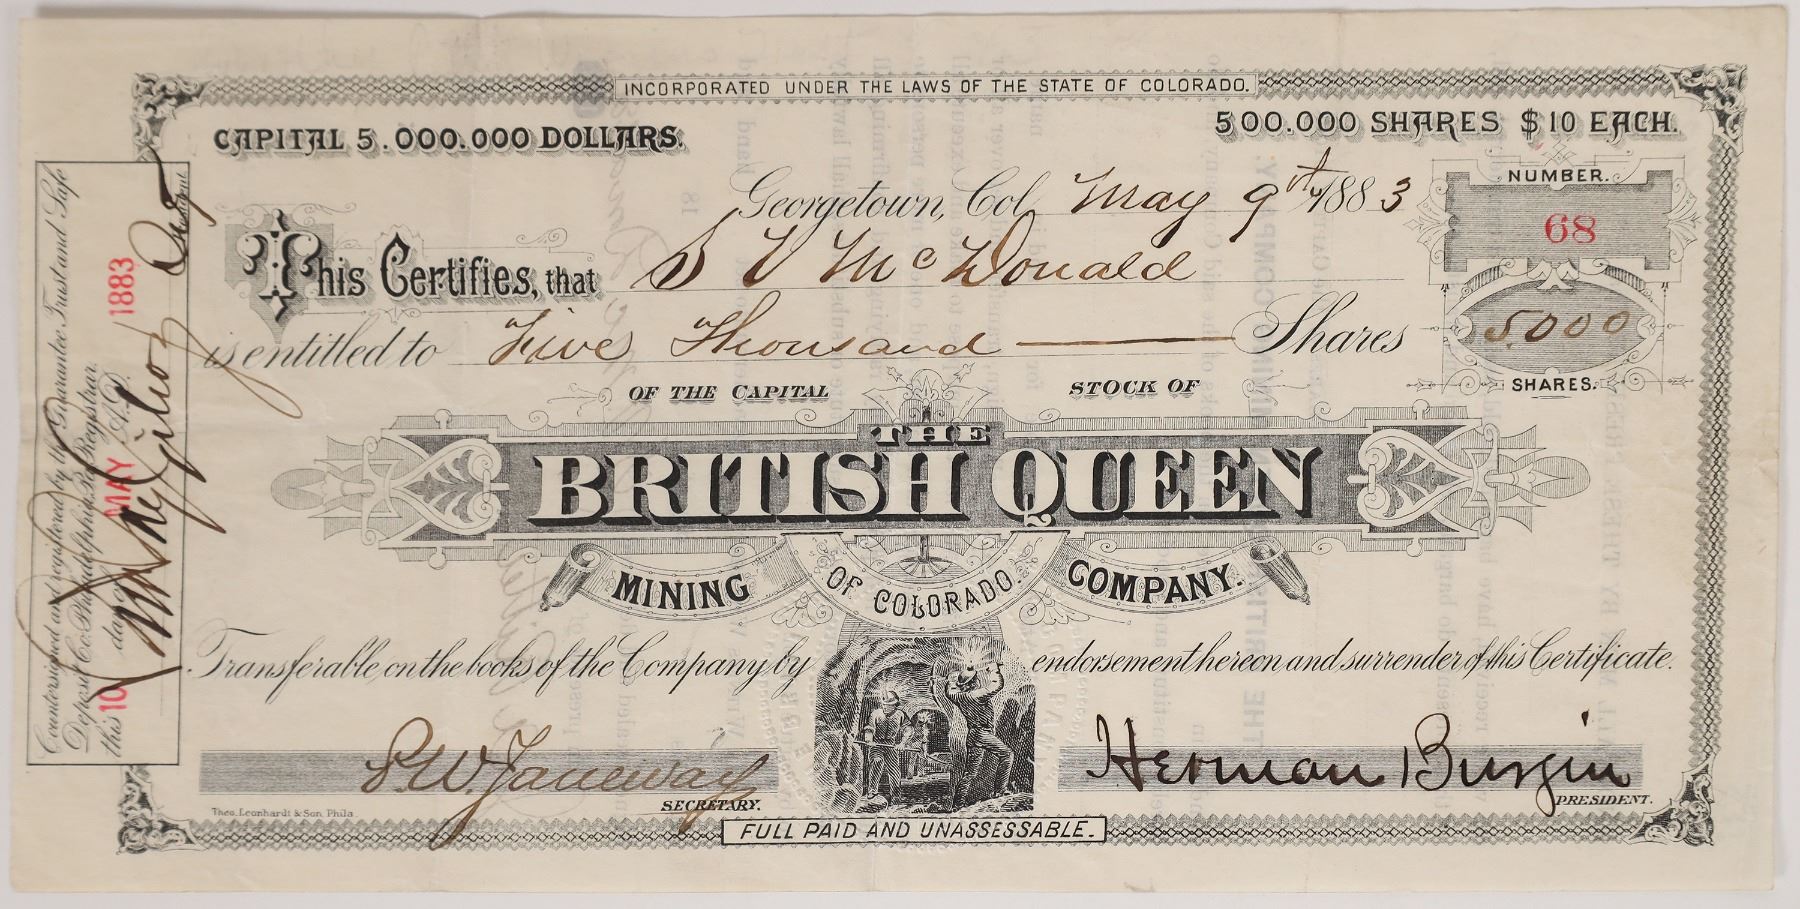 INCORPORATED UNDER THE LAWS OF THE STATE OF COLORADO.
CAPITAL 5.000.000 DOLLARS.
500.000 SHARES $10 EACH.
Georgetown, Col. May 9th 1883
NUMBER.
68
This Certifies, that S V McDonald
is entitled to Five Thousand Shares
5.000
SHARES.
OF THE CAPITAL STOCK OF
THE
BRITISH QUEEN
MINING COMPANY.
OF COLORADO.
Transferable on the books of the Company by endorsement hereon and surrender of this Certificate.
S.W. Janeway
SECRETARY.
Herman Burgin
PRESIDENT.
Theo. Leonhardt & Son, Phila.
FULL PAID AND UNASSESSABLE.
Countersigned and registered by the Guarantee Trust and Safe
Deposit Co. Philadelphia, Pa. Registrar.
this 10 day of MAY A.D. 1883